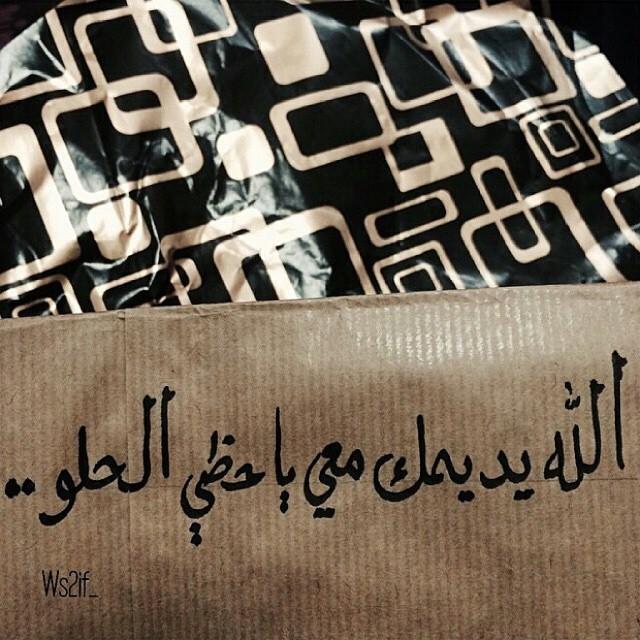 الله يديمك معي ياحظي الحلو..
Ws2if_